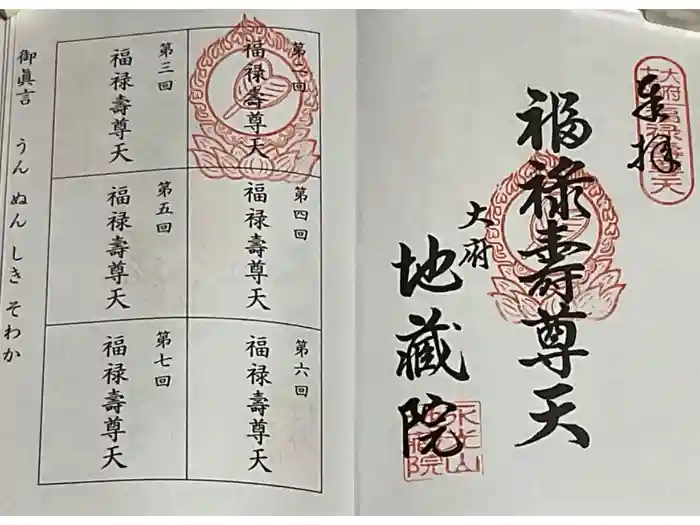 奉拝
大府 福禄壽尊天
福禄壽尊天
大府
地蔵院
第二回
福禄壽尊天
第三回
福禄壽尊天
第四回
福禄壽尊天
第五回
福禄壽尊天
第六回
福禄壽尊天
第七回
福禄壽尊天
御眞言 うん ぬん しき そわか